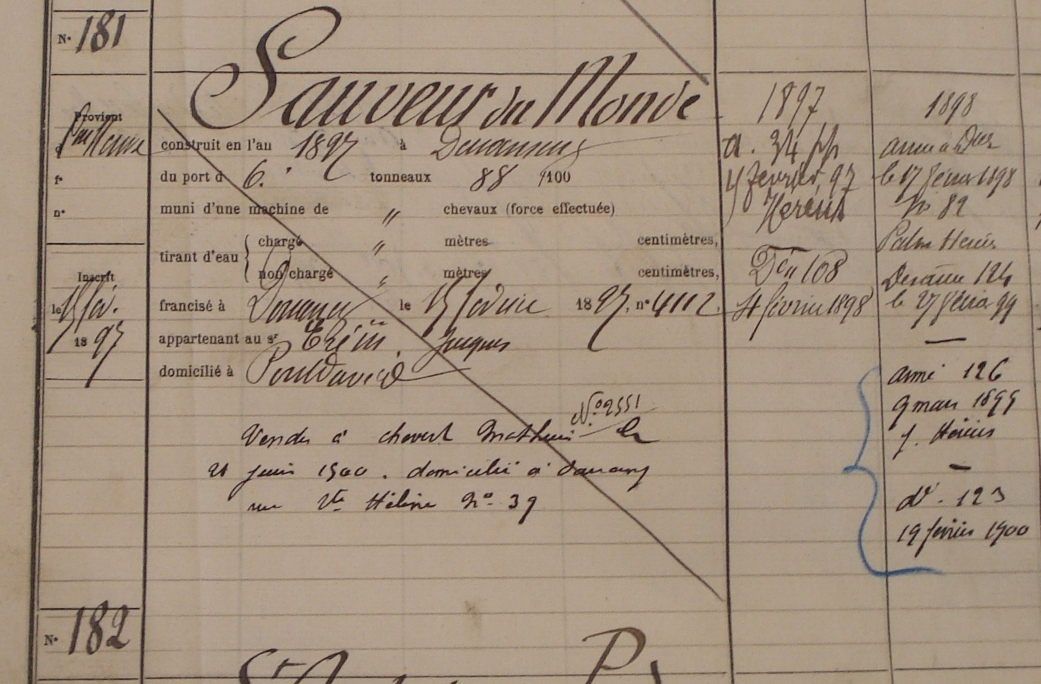 N° 181
Sauveur du Monde
Provient
construit en l'an 1897 à Douarnenez
du port de 6. tonneaux 88 /100
f°
n°
muni d'une machine de " chevaux (force effectuée)
tirant d'eau { chargé " mètres centimètres,
non chargé " mètres centimètres,
Inscrit
le 15 fév. 1897
francisé à Douarnenez le 15 février 1897. n° 4112.
appartenant au sr Jacques
domicilié à Pouldavid
N° 2551
Vendu à chevert Mathieu le
21 juin 1900. domicilié à Douarnz
rue Ste Hélène N° 39
1897
a. 34
4 février 97
Dcn 108
4 février 1898
1898
armé à Dnez
le 17 février 1898
N° 82
Désarmé 124
le 27 février 99
—
armé 126
9 mars 1899
—
d° - 123
19 février 1900
N° 182
St